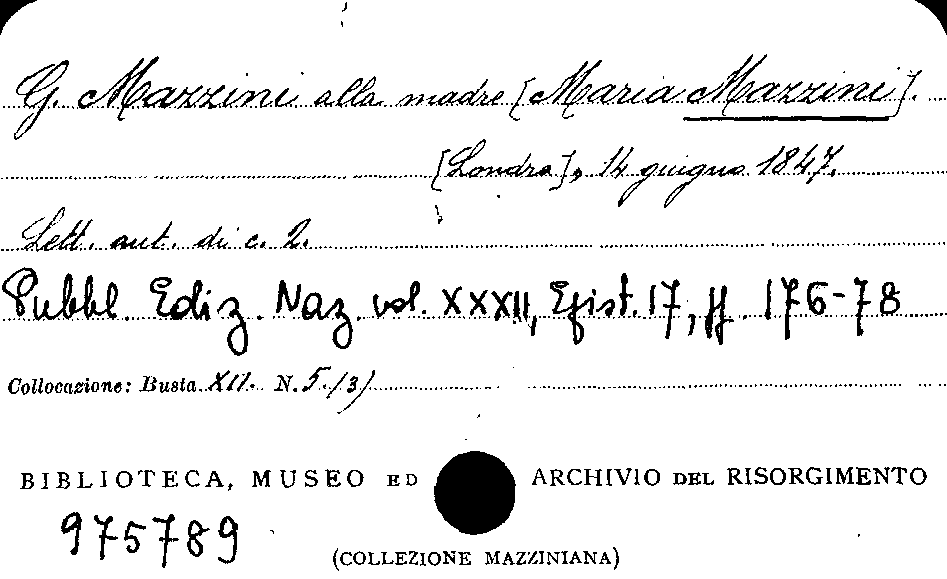 G. Mazzini alla madre [Maria Mazzini].
[Londra], 14 giugno 1847.
Lett. aut. di c. 2.
Pubbl. Ediz. Naz. vol. XXXII, Epist. 17, pp. 176-78
Collocazione: Busta XII. N. 5/3)
BIBLIOTECA, MUSEO ED ARCHIVIO DEL RISORGIMENTO
975789
(COLLEZIONE MAZZINIANA)